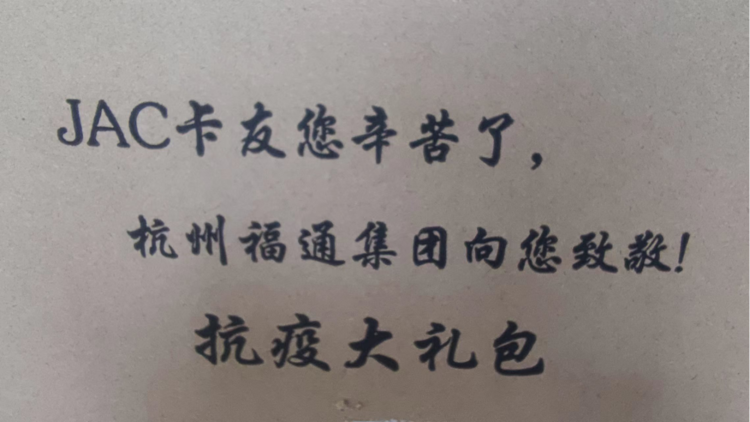 JAC卡友您辛苦了，
杭州福通集团向您致敬！
抗疫大礼包